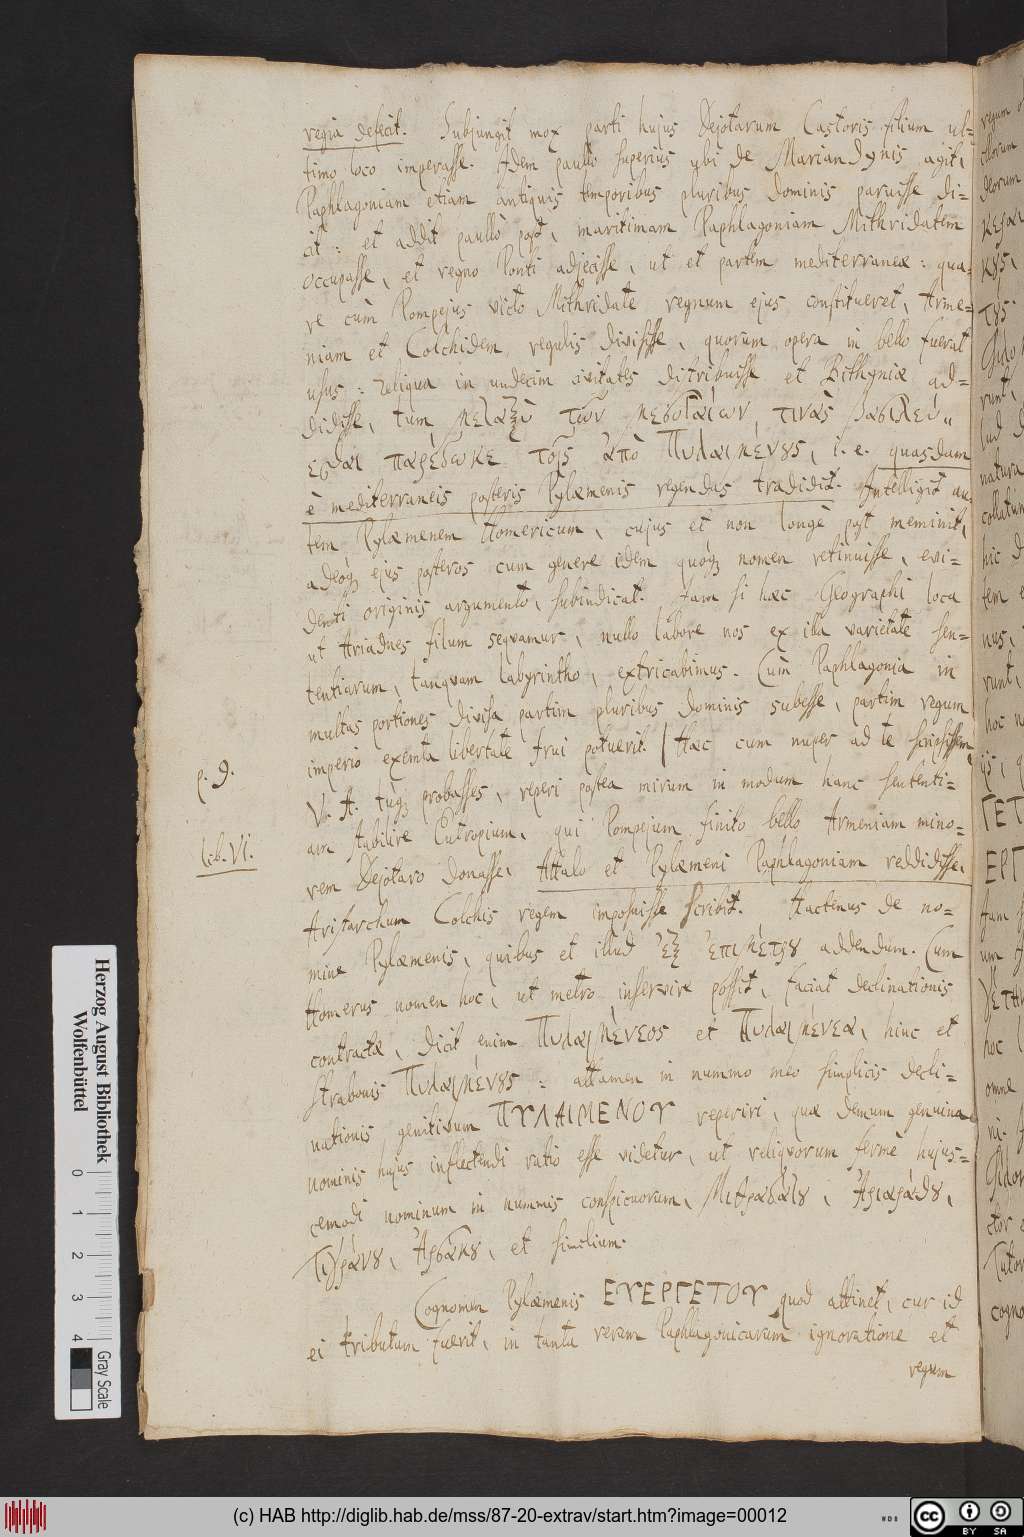 regia defecit. Subjungit mox parti hujus Dejotarum Castoris filium ul=
timo loco imperasse. Idem paullo superius ubi de Mariandynis agit,
Paphlagoniam etiam antiquis temporibus pluribus dominis paruisse di=
cit: et addit paullo post, maritimam Paphlagoniam Mithridatem
occupasse, et regno Ponti adjecisse, ut et partem mediterraneæ: qua=
re cùm Pompejus victo Mithridate regnum ejus constitueret, Arme=
niam et Colchidem regulis divisisse, quorum opera in bello fuerat
usus: reliqua in undecim civitates distribuisse et Bithyniæ ad=
didisse, tum μεταξὺ τῶν μεσογαίων τινὰς βασιλεύ„
εσθαι παρέδωκε τοῖς ἀπὸ Πυλαιμένους, i. e. quasdam
è mediterraneis posteris Pylæmenis regendas tradidit. Intelligit au=
tem Pylæmenem Homericum, cujus et non longè post meminit,
adeoq; ejus posteros cum genere idem quoq; nomen retinuisse, evi=
denti originis argumento, subindicat. Jam si hæc Geographi loca
ut Ariadnes filum seqvamur, nullo labore nos ex illa varietate sen=
tentiarum, tanqvam labyrintho, extricabimus. Cùm Paphlagonia in
multas portiones divisa partim pluribus dominis subesse, partim regum
imperio exemta libertate frui potuerit. / Hæc cum nuper ad te scripsissem
p. 9.
V. A. tuq; probasses, reperi postea mirum in modum hanc sententi=
am stabilire Eutropium, qui Pompejum finito bello Armeniam mino=
lib. VI.
rem Dejotaro donasse, Attalo et Pylæmeni Paphlagoniam reddidisse,
Aristarchum Colchis regem imposuisse scribit. Hactenus de no=
mine Pylæmenis, quibus et illud ἐξ ἐπιμέτρου addendum. Cum
Homerus nomen hoc, ut metro inservire possit, faciat declinationis
contractæ, dicit enim Πυλαιμένεος et Πυλαιμένεα, hinc et
Strabonis Πυλαιμένους: attamen in nummo meo simplicis decli=
nationis genitivum ΠΥΛΑΙΜΕΝΟΥ reperiri, quæ demum genuina
nominis hujus inflectendi ratio esse videtur, ut reliqvorum fermè hujus=
cemodi nominum in nummis conspicuorum, Μιθραδάτου, Ἀριαράθου,
Τιγράνου, Ἀρσάκου, et similium.
Cognomen Pylæmenis ΕΥΕΡΓΕΤΟΥ quod attinet, cur id
ei tributum fuerit, in tanta rerum Paphlagonicarum ignoratione et
regum
Herzog August Bibliothek
Wolfenbüttel
0 1 2 3 4
Gray Scale
(c) HAB http://diglib.hab.de/mss/87-20-extrav/start.htm?image=00012
WDB
cc BY SA